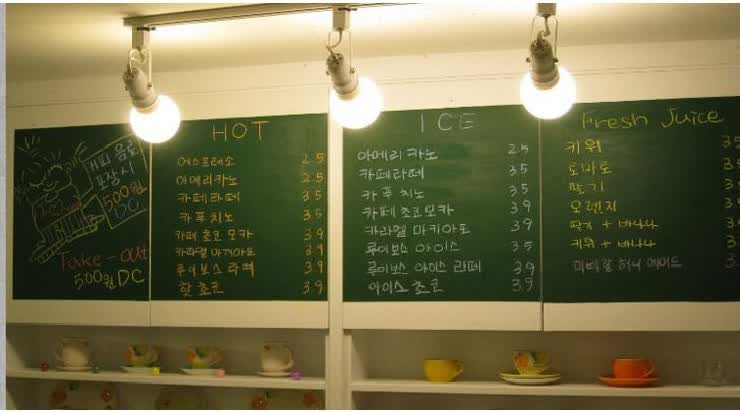 커피 음료
포장시
500원
DC
Take-out
500원 DC
HOT
에스프레소 2.5
아메리카노 2.5
카페라떼 3.5
카푸치노 3.5
카페 초코 모카 3.9
카라멜 마끼아또 3.9
루이보스 라떼 3.9
핫 초코 3.9
ICE
아메리카노 2.5
카페라떼 3.5
카푸치노 3.5
카페 초코모카 3.9
카라멜 마키아또 3.9
루이보스 아이스 3.5
루이보스 아이스 라떼 3.9
아이스 초코 3.9
Fresh Juice
키위
토마토
딸기
오렌지
딸기 + 바나나
키위 + 바나나
허니 에이드